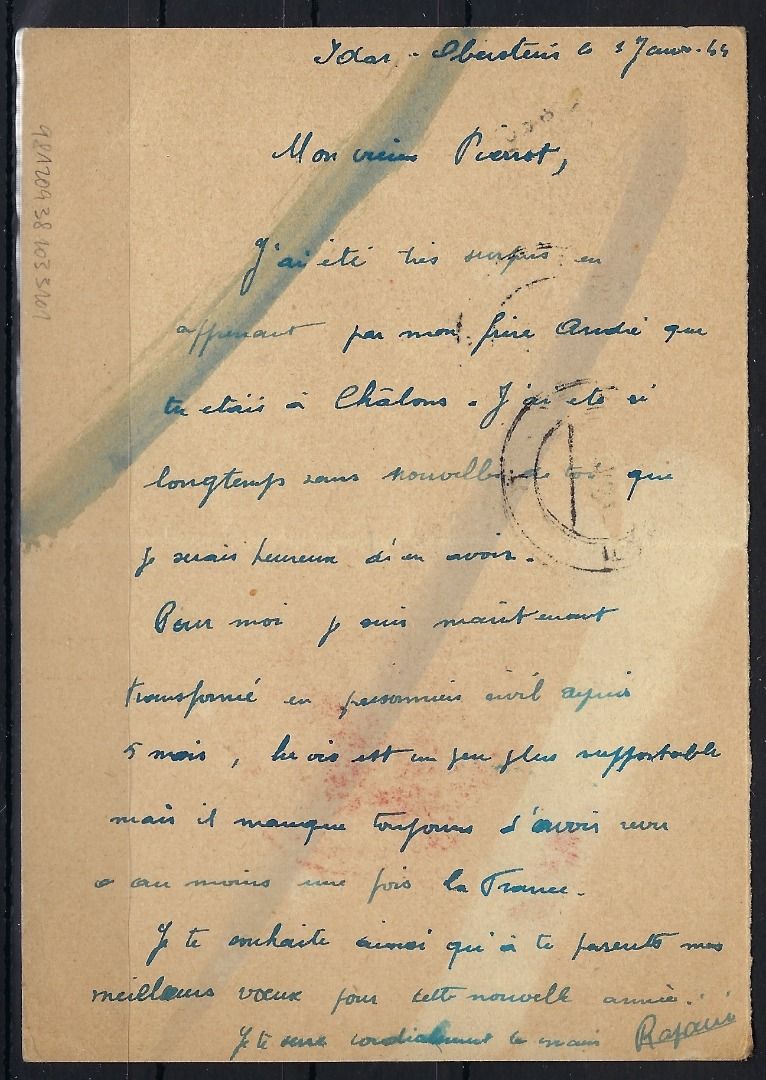 Idar-Oberstein le 1 Janv. 44
Mon vieux Pierrot,
J'ai été très surpris en
apprenant par mon frère André que
tu etais à Châlons. J'ai eté si
longtemps sans nouvelle de toi que
je serais heureux d'en avoir.
Pour moi je suis maintenant
transformé en prisonnier civil depuis
5 mois, la vie est un peu plus supportable
mais il manque toujours d'avoir revu
au moins une fois la France.
Je te souhaite ainsi qu'à te parents mes
meilleurs vœux pour cette nouvelle année.
Je te serre cordialement la main